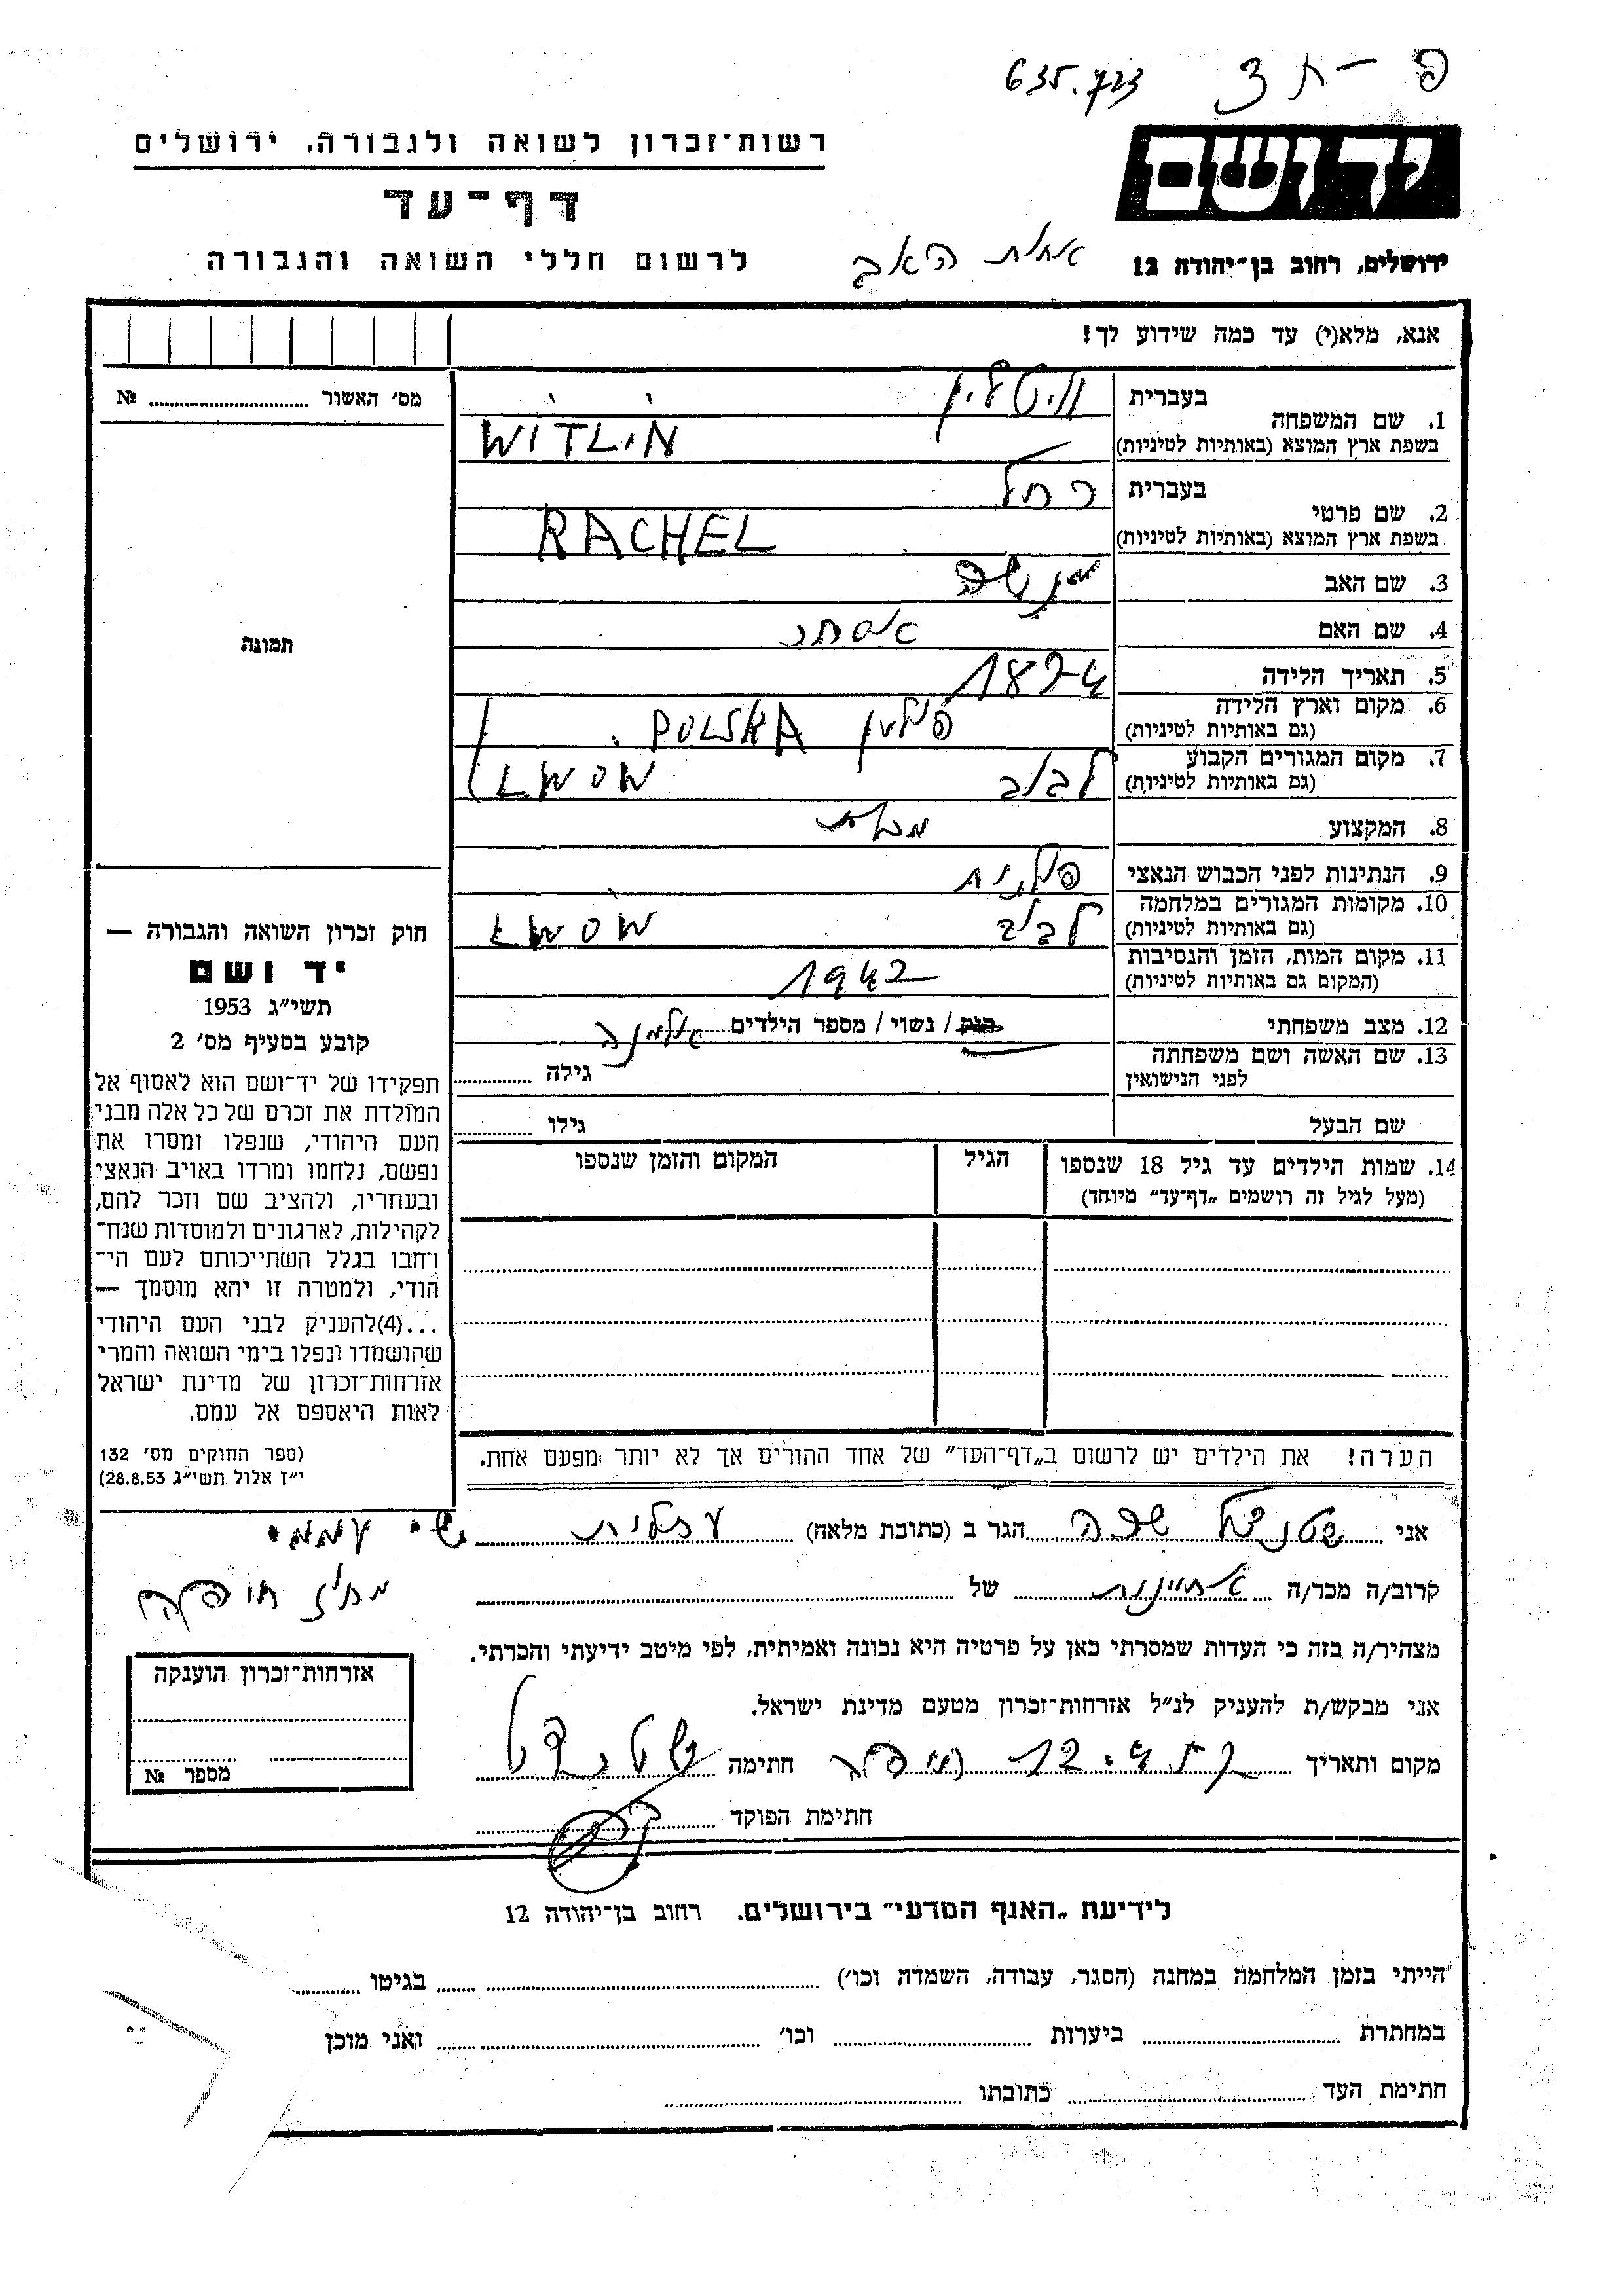 פ-ת צ 635.723
ידושם
רשות־זכרון לשואה ולגבורה, ירושלים
דף־עד
ירושלים, רחוב בן־יהודה 12
אחות האב
לרשום חללי השואה והגבורה
אנא, מלא(י) עד כמה שידוע לך!
מס׳ האשור № 
1. שם המשפחה בעברית ויטלין
בשפת ארץ המוצא (באותיות לטיניות) WITLIN
2. שם פרטי בעברית רחל
בשפת ארץ המוצא (באותיות לטיניות) RACHEL
3. שם האב מנשה
4. שם האם אסתר
5. תאריך הלידה 1874
6. מקום וארץ הלידה (גם באותיות לטיניות) פולין POLSKA
7. מקום המגורים הקבוע (גם באותיות לטיניות) לבוב LWOW
8. המקצוע
9. הנתינות לפני הכבוש הנאצי פולנית
10. מקומות המגורים במלחמה (גם באותיות לטיניות) לבוב LWOW
11. מקום המות, הזמן והנסיבות (המקום גם באותיות לטיניות) 1942
12. מצב משפחתי רוק / נשוי / מספר הילדים אלמנה
13. שם האשה ושם משפחתה לפני הנישואין גילה
שם הבעל גילו
14. שמות הילדים עד גיל 18 שנספו הגיל המקום והזמן שנספו
(מעל לגיל זה רושמים „דף־עד״ מיוחד)
תמונה
חוק זכרון השואה והגבורה —
יד ושם
תשי״ג 1953
קובע בסעיף מס׳ 2
תפקידו של יד־ושם הוא לאסוף אל
המולדת את זכרם של כל אלה מבני
העם היהודי, שנפלו ומסרו את
נפשם, נלחמו ומרדו באויב הנאצי
ובעוזריו, ולהציב שם וזכר להם,
לקהילות, לארגונים ולמוסדות שנח־
רחבו בגלל השתייכותם לעם הי־
הודי, ולמטרה זו יהא מוסמך —
...(4)להעניק לבני העם היהודי
שהושמדו ונפלו בימי השואה והמרי
אזרחות־זכרון של מדינת ישראל
לאות היאספם אל עמם.
(ספר החוקים מס׳ 132
י״ז אלול תשי״ג 28.8.53)
הערה! את הילדים יש לרשום ב„דף־העד״ של אחד ההורים אך לא יותר מפעם אחת.
אני שטנצל שרה הגר ב (כתובת מלאה) עתלית
קרוב/ה מכר/ה אחיינית של
מצהיר/ה בזה כי העדות שמסרתי כאן על פרטיה היא נכונה ואמיתית, לפי מיטב ידיעתי והכרתי.
אני מבקש/ת להעניק לנ״ל אזרחות־זכרון מטעם מדינת ישראל.
מקום ותאריך חתימה
חתימת הפוקד
מחוז חיפה
אזרחות־זכרון הוענקה
מספר №
לידיעת „האגף המדעי״ בירושלים. רחוב בן־יהודה 12
הייתי בזמן המלחמה במחנה (הסגר, עבודה, השמדה וכו׳) בגיטו
במחתרת ביערות וכו׳ ואני מוכן
חתימת העד כתובתו